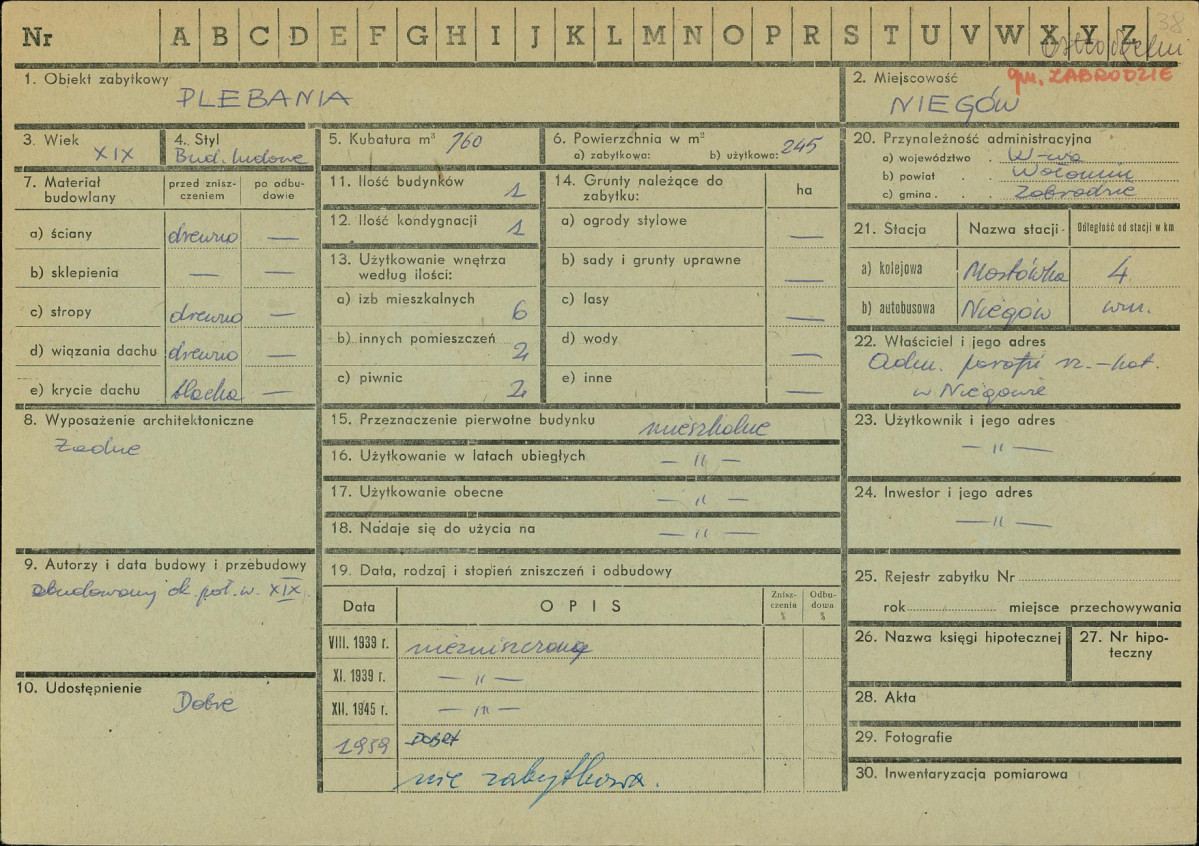 Nr A B C D E F G H I J K L M N O P R S T U V W X Y Z
38
gm. ZABRODZIE
1. Obiekt zabytkowy
PLEBANIA
2. Miejscowość
NIEGÓW
3. Wiek
XIX
4. Styl
Bud. ludowe
5. Kubatura m³ 760
6. Powierzchnia w m²
a) zabytkowa: b) użytkowa: 245
7. Materiał budowlany
przed zniszczeniem
po odbudowie
a) ściany drewno —
b) sklepienia — —
c) stropy drewno —
d) wiązania dachu drewno —
e) krycie dachu blacha —
8. Wyposażenie architektoniczne
Żadne
9. Autorzy i data budowy i przebudowy
zbudowany ok. poł. w. XIX.
10. Udostępnienie
Dobre
11. Ilość budynków 1
12. Ilość kondygnacji 1
13. Użytkowanie wnętrza
według ilości:
a) izb mieszkalnych 6
b) innych pomieszczeń 2
c) piwnic 2
14. Grunty należące do
zabytku: ha
a) ogrody stylowe —
b) sady i grunty uprawne —
c) lasy —
d) wody —
e) inne —
15. Przeznaczenie pierwotne budynku mieszkalne
16. Użytkowanie w latach ubiegłych — " —
17. Użytkowanie obecne — " —
18. Nadaje się do użycia na — " —
19. Data, rodzaj i stopień zniszczeń i odbudowy
Data OPIS Zniszczenia % Odbudowa %
VIII. 1939 r. niezniszczona
XI. 1939 r. — " —
XII. 1945 r. — " —
1959 DOBRY
nie zabytkowa.
20. Przynależność administracyjna
a) województwo . W-wa
b) powiat . . Wołomin
c) gmina . . . Zabrodzie
21. Stacja Nazwa stacji Odległość od stacji w km
a) kolejowa Mostówka 4
b) autobusowa Niegów wm.
22. Właściciel i jego adres
Adm. parafii rz.-kat.
w Niegowie
23. Użytkownik i jego adres
— " —
24. Inwestor i jego adres
— " —
25. Rejestr zabytku Nr
rok miejsce przechowywania
26. Nazwa księgi hipotecznej
27. Nr hipoteczny
28. Akta
29. Fotografie
30. Inwentaryzacja pomiarowa